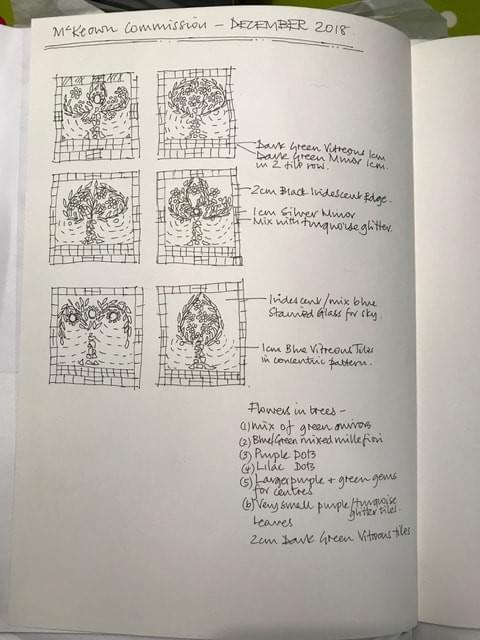 McKeown Commission – DECEMBER 2018.
Dark Green Vitreous 1cm
Dark Green Mirror 1cm.
in 2 tile row.
2cm Black Iridescent Edge.
1cm Silver Mirror
Mix with turquoise glitter.
Iridescent/mix blue
Stained Glass for sky.
1cm Blue Vitreous Tiles
in concentric pattern.
Flowers in trees –
(1) mix of green mirrors
(2) Blue/Green mixed millefiori
(3) Purple Dots
(4) Lilac Dots
(5) Larger purple + green gems
for centres
(6) Very small purple/turquoise
glitter tiles.
Leaves
2cm Dark Green Vitreous tiles